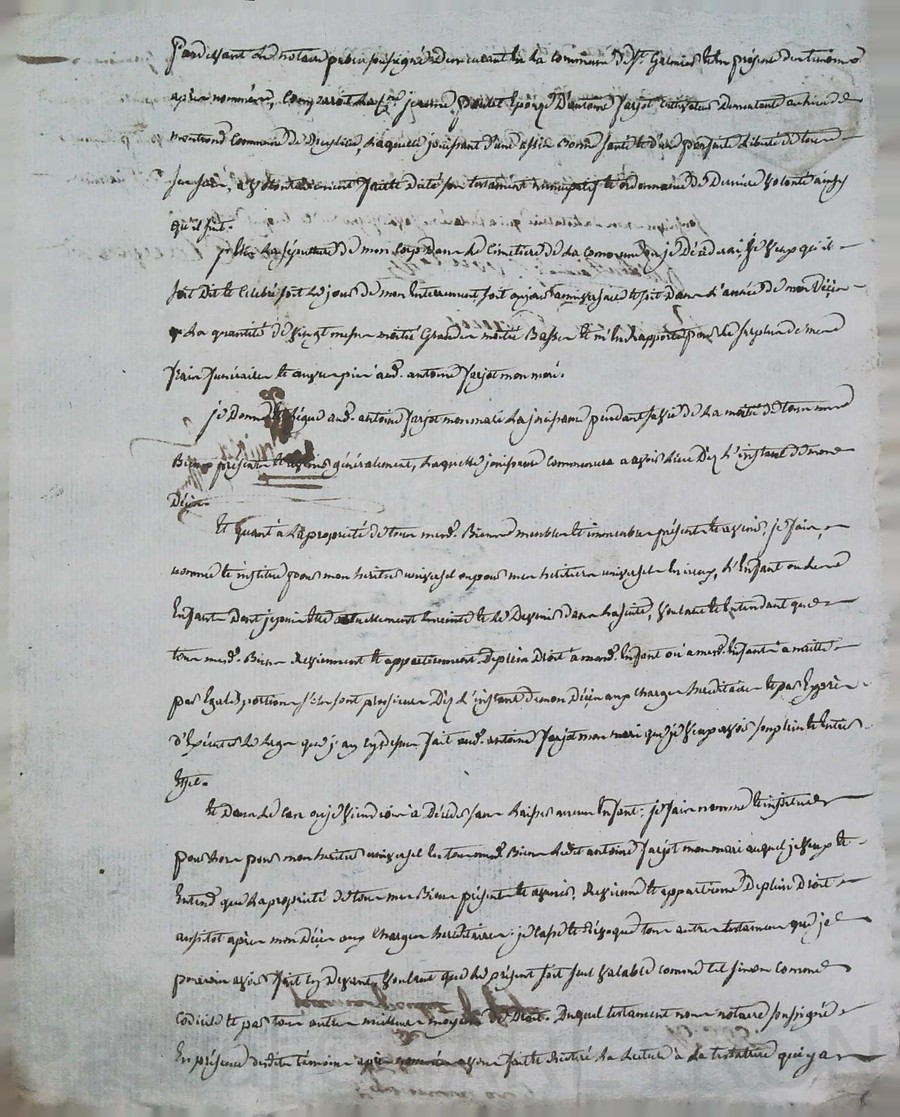 Pardevant le notaire public soussigné demeurant en la commune de St. Galmier et en présence des témoins
après nommés, comparoit la Cne jeanne poulet Epouse D'antoine jarjot cultivateur demeurant au lieu de
montrond Commune de Meylieu, Laquelle jouissant d'une assés Bonne santé et d'une parfaite liberté de tous
ses sens, a volontairement faite dicté son testament nuncupatif et ordonnance de Derniere volonté ainsy
qu'il suit.
j'elis la sépulture de mon corps Dans Le Cimetiere de la Commune ou je Décéderai, je veux qu'il
soit Dit et Celebré soit le jour de mon Enterrement soit au jour anniversaire et soit Dans l'année de mon Décès
La quantité de vingt messes moitié Grandes moitié Basses et m'En Rapporte pour le surplus de mes
frais funéraires et œuvres pies aud. antoine jarjot mon mari.
je Donne et legue aud. antoine jarjot mon mari La jouissance pendant sa vie de La moitié de tous mes
Biens présents et avenir généralement, Laquelle jouissance commencera a avoir lieu Dez L'instant de mon
Décès.
Et quant à la propriété de tous mesd. Biens meubles et immeubles présents et avenir, je fais,
nomme et institue pour mon heritier universel ou pour mes heritiers universels Enceux, L'Enfant ou les
Enfants Dont je puis Etre actuellement Enceinte et le Devenir dans la suite, voulant et Entendant que
tous mesd. Biens Reviennent et appartiennent De plein Droit a mond. Enfant ou a mesd. Enfants a naitre
par Egales portions s'ils sont plusieurs Dez L'instant de mon Décès aux charges hereditaires et par Exprès
d'Exécuter Le Legs que j'ay cy dessus fait aud. antoine jarjot mon mari que je veux avoir son plein et Entier
Effet.
Et Dans Le Cas ou je viendrois à Décéder sans Laisser aucun Enfant, je fais nomme et institue
pour lors pour mon heritier universel En tous mesd. Biens Ledit antoine jarjot mon mari auquel je veux et
Entend que La propriété de tous mes Biens présents et avenir, Revienne et appartienne De plein Droit
aussitot après mon Décès aux charges hereditaires : je Casse et Révoque tous autres testaments que je
pourrois avoir fait cy Devant, voulant que Le présent soit seul valable comme tel sinon comme
Codicile et par tous autres meilleurs moyens de Droit. Duquel testament nous notaire soussigné
En présence desdits témoins après nommés avons faite Et Réitéré La Lecture à La testatrice qui y a